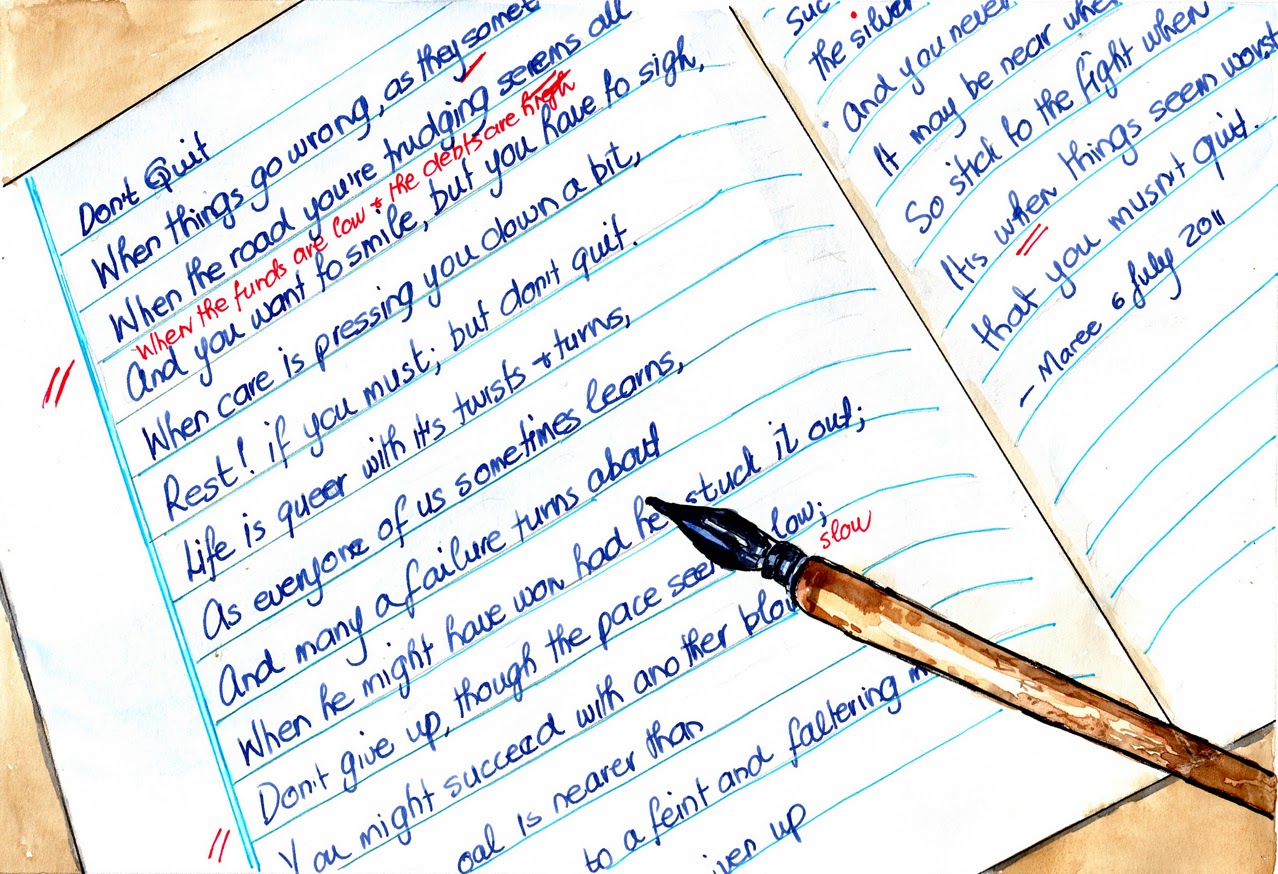 Don't Quit
When things go wrong, as they somet
When the road you're trudging seems all
When the funds are low + the debts are high
And you want to smile, but you have to sigh,
When care is pressing you down a bit,
Rest! if you must; but don't quit.
Life is queer with it's twists + turns,
As everyone of us sometimes learns,
And many a failure turns about
When he might have won had he stuck it out;
Don't give up, though the pace see low;
slow
You might succeed with another blow
oal is nearer than
to a feint and faltering m
iven up
suc
the silver
And you never
It may be near whe
So stick to the fight when
It is when things seem worst
that you musn't quit.
- Maree 6 July 2011